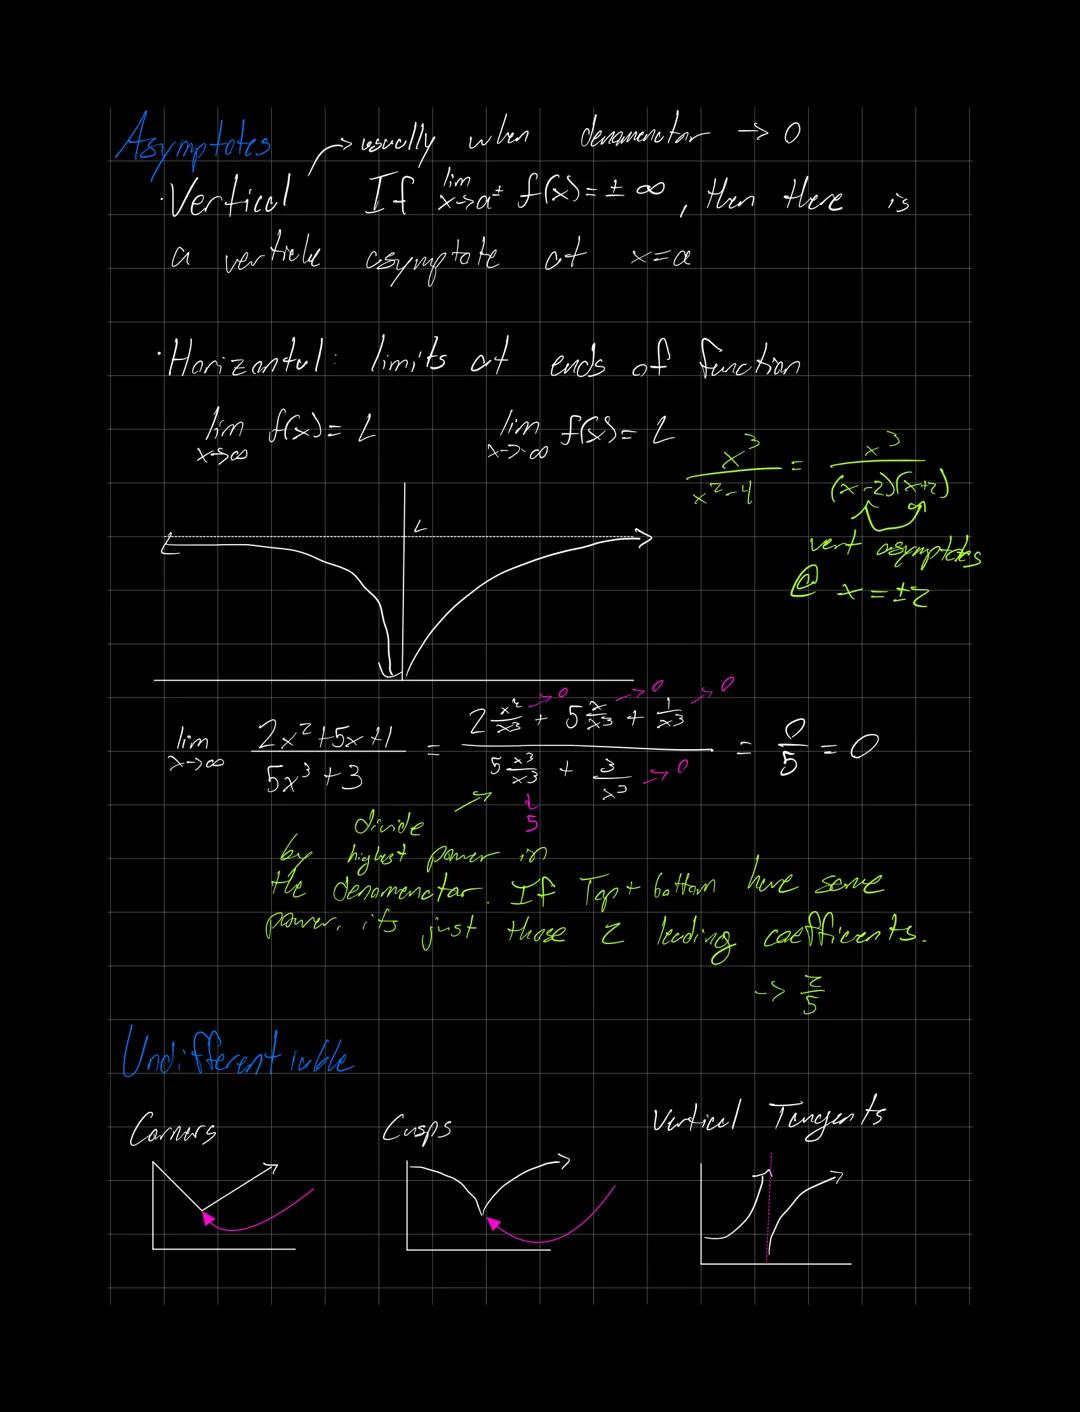 Asymptotes → usually when denomenator → 0
· Vertical If lim x→a± f(x) = ± ∞, then there is
a verticle asymptote at x=a
· Horizontal: limits at ends of function
lim x→∞ f(x) = L lim x→-∞ f(x) = L
x^3/(x^2-4) = x^3/((x-2)(x+2))
L
vert asymptotes
@ x = ±2
lim x→∞ (2x^2+5x+1)/(5x^3+3) = (2 x^2/x^3 →0 + 5 x/x^3 →0 + 1/x^3 →0)/(5 x^3/x^3 + 3/x^3 →0) = 0/5 = 0
5
divide
by highest power in
the denomenator. If Top + bottom have same
power, its just those 2 leading coefficients.
→ 2/5
Undifferentiable
Corners Cusps Vertical Tangents